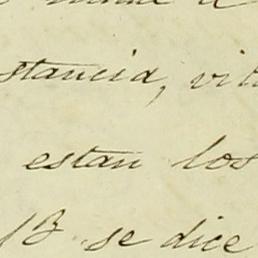 stancia, vi
estan los
13 se dice